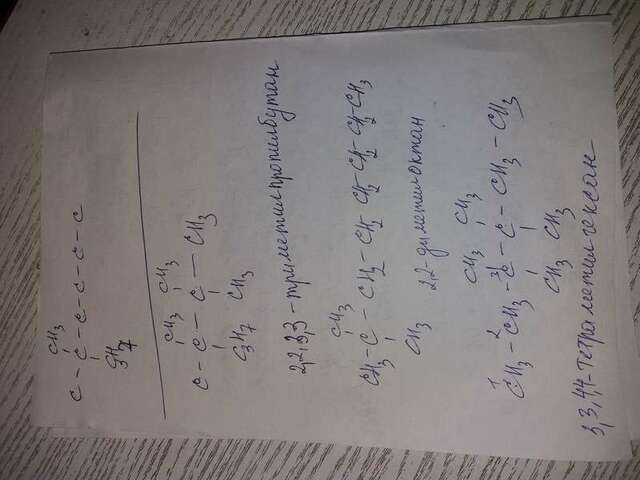 CH3
C - C - C - C - C - C
C3H7
CH3 CH3
C - C - C - CH3
C3H7 CH3
2,2,3,3 - триметилпропилбутан
CH3
CH3 - C - CH2 - CH2 CH2 CH2 CH2 - CH3
CH3
2,2 - диметилоктан
CH3 CH3
1 2 3
CH3 - CH3 - C - C - CH3 - CH3
CH3 CH3
3,3,4,4 - тетраметилгексан